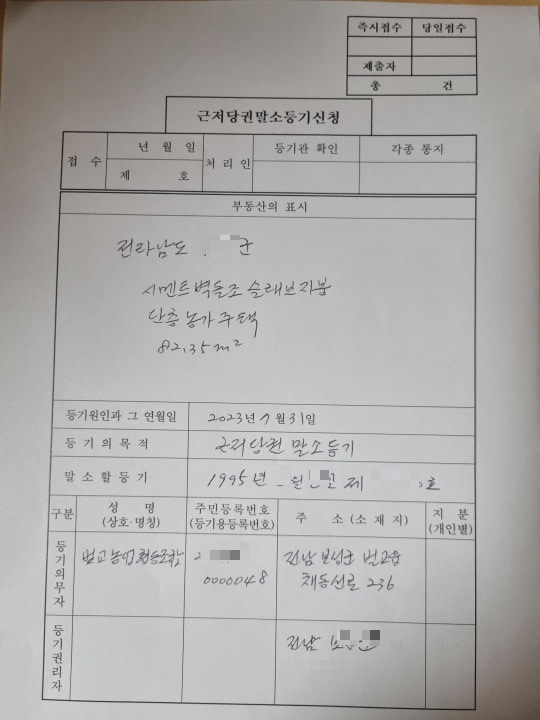 즉시접수 당일접수
제출자
총 건
근저당권말소등기신청
접 수 년 월 일 처 리 인 등기관 확인 각종 통지
제 호
부동산의 표시
전라남도 . 군
시멘트벽돌조 슬래브지붕
단층 농가주택
82.35m²
등기원인과 그 연월일 2023년 7월 31일
등 기 의 목 적 근저당권 말소등기
말 소 할 등 기 1995년 월 제 호
구분 성 명 (상호·명칭) 주민등록번호 (등기용등록번호) 주 소 (소 재 지) 지 분 (개인별)
등기의무자 벌교농업협동조합 2 전남 보성군 벌교읍
0000048 채동선로 236
등기권리자 전남 보